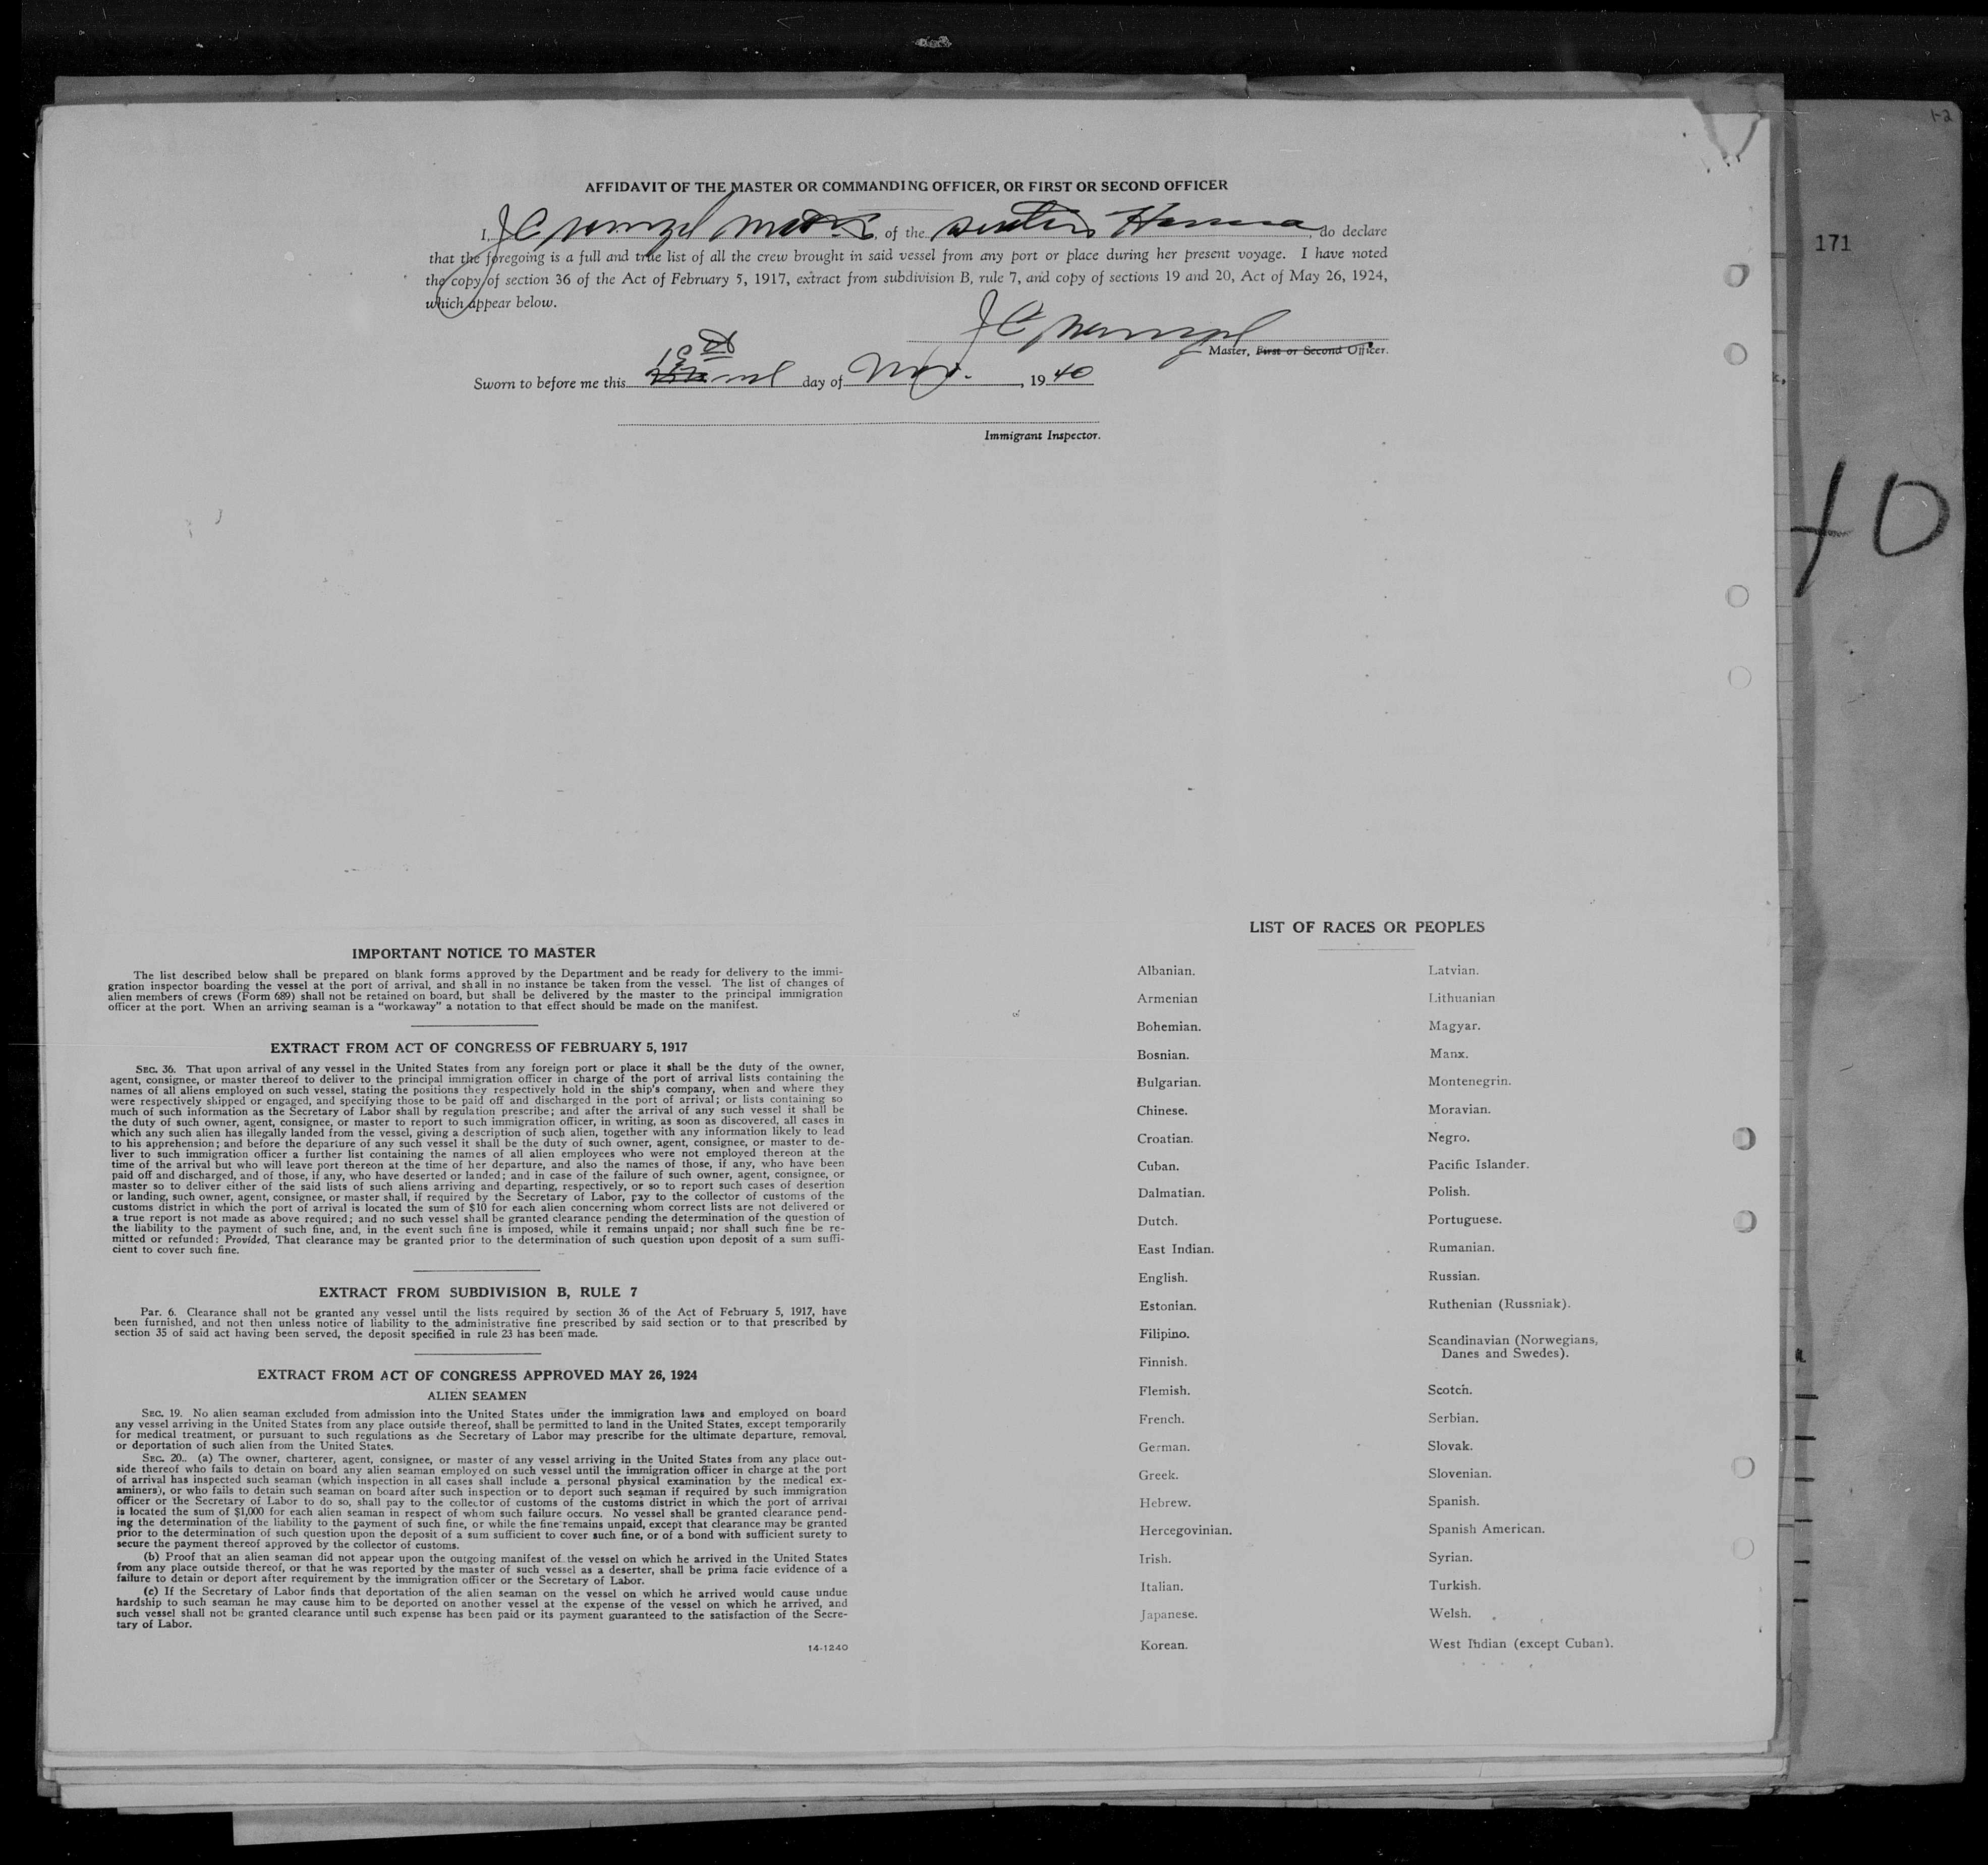 1-2
171
AFFIDAVIT OF THE MASTER OR COMMANDING OFFICER, OR FIRST OR SECOND OFFICER
I, J C of the do declare
that the foregoing is a full and true list of all the crew brought in said vessel from any port or place during her present voyage. I have noted
the copy of section 36 of the Act of February 5, 1917, extract from subdivision B, rule 7, and copy of sections 19 and 20, Act of May 26, 1924,
which appear below.
J C
Master, First or Second Officer.
Sworn to before me this day of Nov. , 19 40
Immigrant Inspector.
IMPORTANT NOTICE TO MASTER
The list described below shall be prepared on blank forms approved by the Department and be ready for delivery to the immi-
gration inspector boarding the vessel at the port of arrival, and shall in no instance be taken from the vessel. The list of changes of
alien members of crews (Form 689) shall not be retained on board, but shall be delivered by the master to the principal immigration
officer at the port. When an arriving seaman is a "workaway" a notation to that effect should be made on the manifest.
EXTRACT FROM ACT OF CONGRESS OF FEBRUARY 5, 1917
SEC. 36. That upon arrival of any vessel in the United States from any foreign port or place it shall be the duty of the owner,
agent, consignee, or master thereof to deliver to the principal immigration officer in charge of the port of arrival lists containing the
names of all aliens employed on such vessel, stating the positions they respectively hold in the ship's company, when and where they
were respectively shipped or engaged, and specifying those to be paid off and discharged in the port of arrival; or lists containing so
much of such information as the Secretary of Labor shall by regulation prescribe; and after the arrival of any such vessel it shall be
the duty of such owner, agent, consignee, or master to report to such immigration officer, in writing, as soon as discovered, all cases in
which any such alien has illegally landed from the vessel, giving a description of such alien, together with any information likely to lead
to his apprehension; and before the departure of any such vessel it shall be the duty of such owner, agent, consignee, or master to de-
liver to such immigration officer a further list containing the names of all alien employees who were not employed thereon at the
time of the arrival but who will leave port thereon at the time of her departure, and also the names of those, if any, who have been
paid off and discharged, and of those, if any, who have deserted or landed; and in case of the failure of such owner, agent, consignee, or
master so to deliver either of the said lists of such aliens arriving and departing, respectively, or so to report such cases of desertion
or landing, such owner, agent, consignee, or master shall, if required by the Secretary of Labor, pay to the collector of customs of the
customs district in which the port of arrival is located the sum of $10 for each alien concerning whom correct lists are not delivered or
a true report is not made as above required; and no such vessel shall be granted clearance pending the determination of the question of
the liability to the payment of such fine, and, in the event such fine is imposed, while it remains unpaid; nor shall such fine be re-
mitted or refunded: Provided, That clearance may be granted prior to the determination of such question upon deposit of a sum suffi-
cient to cover such fine.
EXTRACT FROM SUBDIVISION B, RULE 7
Par. 6. Clearance shall not be granted any vessel until the lists required by section 36 of the Act of February 5, 1917, have
been furnished, and not then unless notice of liability to the administrative fine prescribed by said section or to that prescribed by
section 35 of said act having been served, the deposit specified in rule 23 has been made.
EXTRACT FROM ACT OF CONGRESS APPROVED MAY 26, 1924
ALIEN SEAMEN
SEC. 19. No alien seaman excluded from admission into the United States under the immigration laws and employed on board
any vessel arriving in the United States from any place outside thereof, shall be permitted to land in the United States, except temporarily
for medical treatment, or pursuant to such regulations as the Secretary of Labor may prescribe for the ultimate departure, removal,
or deportation of such alien from the United States.
SEC. 20.. (a) The owner, charterer, agent, consignee, or master of any vessel arriving in the United States from any place out-
side thereof who fails to detain on board any alien seaman employed on such vessel until the immigration officer in charge at the port
of arrival has inspected such seaman (which inspection in all cases shall include a personal physical examination by the medical ex-
aminers), or who fails to detain such seaman on board after such inspection or to deport such seaman if required by such immigration
officer or the Secretary of Labor to do so, shall pay to the collector of customs of the customs district in which the port of arrival
is located the sum of $1,000 for each alien seaman in respect of whom such failure occurs. No vessel shall be granted clearance pend-
ing the determination of the liability to the payment of such fine, or while the fine remains unpaid, except that clearance may be granted
prior to the determination of such question upon the deposit of a sum sufficient to cover such fine, or of a bond with sufficient surety to
secure the payment thereof approved by the collector of customs.
(b) Proof that an alien seaman did not appear upon the outgoing manifest of the vessel on which he arrived in the United States
from any place outside thereof, or that he was reported by the master of such vessel as a deserter, shall be prima facie evidence of a
failure to detain or deport after requirement by the immigration officer or the Secretary of Labor.
(c) If the Secretary of Labor finds that deportation of the alien seaman on the vessel on which he arrived would cause undue
hardship to such seaman he may cause him to be deported on another vessel at the expense of the vessel on which he arrived, and
such vessel shall not be granted clearance until such expense has been paid or its payment guaranteed to the satisfaction of the Secre-
tary of Labor.
14-1240
LIST OF RACES OR PEOPLES
Albanian.
Armenian
Bohemian.
Bosnian.
Bulgarian.
Chinese.
Croatian.
Cuban.
Dalmatian.
Dutch.
East Indian.
English.
Estonian.
Filipino.
Finnish.
Flemish.
French.
German.
Greek.
Hebrew.
Hercegovinian.
Irish.
Italian.
Japanese.
Korean.
Latvian.
Lithuanian
Magyar.
Manx.
Montenegrin.
Moravian.
Negro.
Pacific Islander.
Polish.
Portuguese.
Rumanian.
Russian.
Ruthenian (Russniak).
Scandinavian (Norwegians,
Danes and Swedes).
Scotch.
Serbian.
Slovak.
Slovenian.
Spanish.
Spanish American.
Syrian.
Turkish.
Welsh.
West Indian (except Cuban).